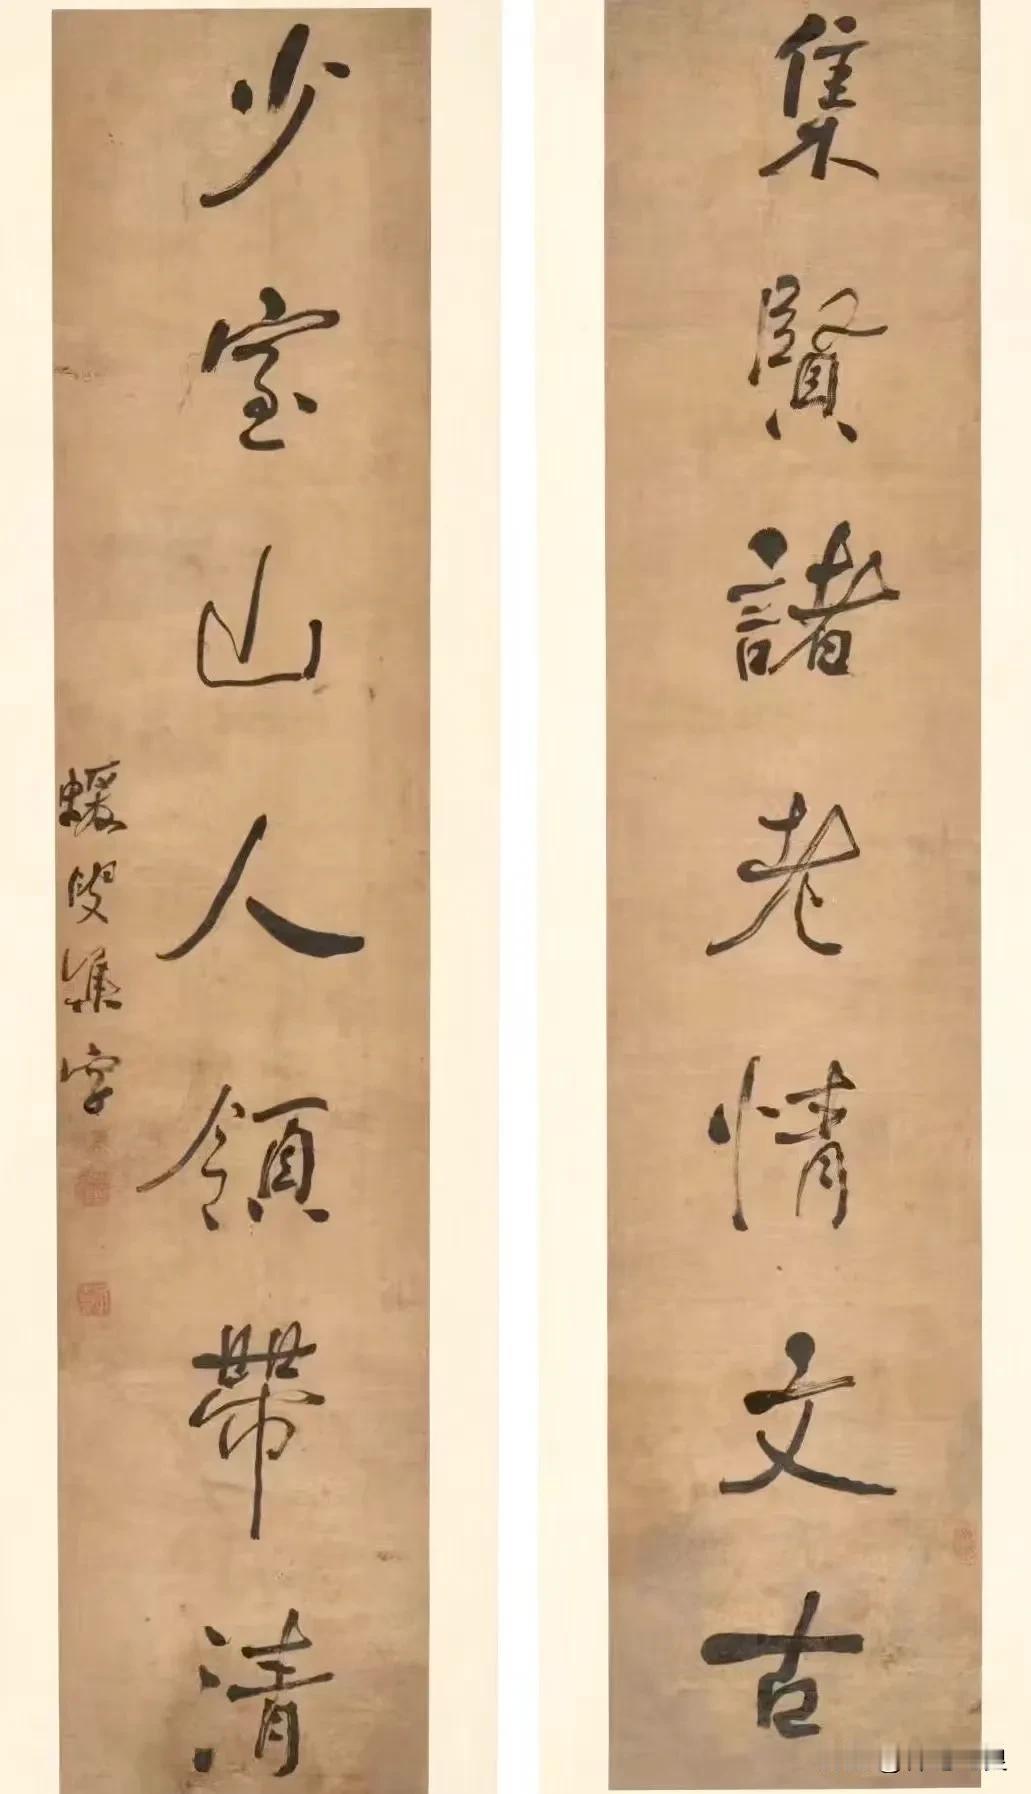 集賢諸老情文古
少室山人領帶清
蝯叟集字